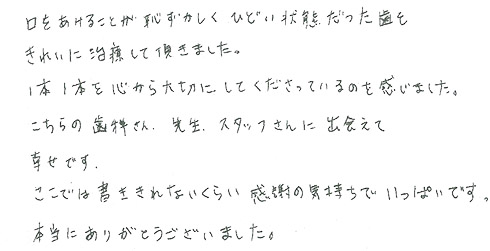 口をあけることが恥ずかしく ひどい状態だった歯を
きれいに治療して頂きました。
1本1本を心から大切にしてくださっているのを感じました。
こちらの歯科さん、先生、スタッフさんに出会えて
幸せです。
ここでは書ききれないくらい感謝の気持ちでいっぱいです。
本当にありがとうございました。